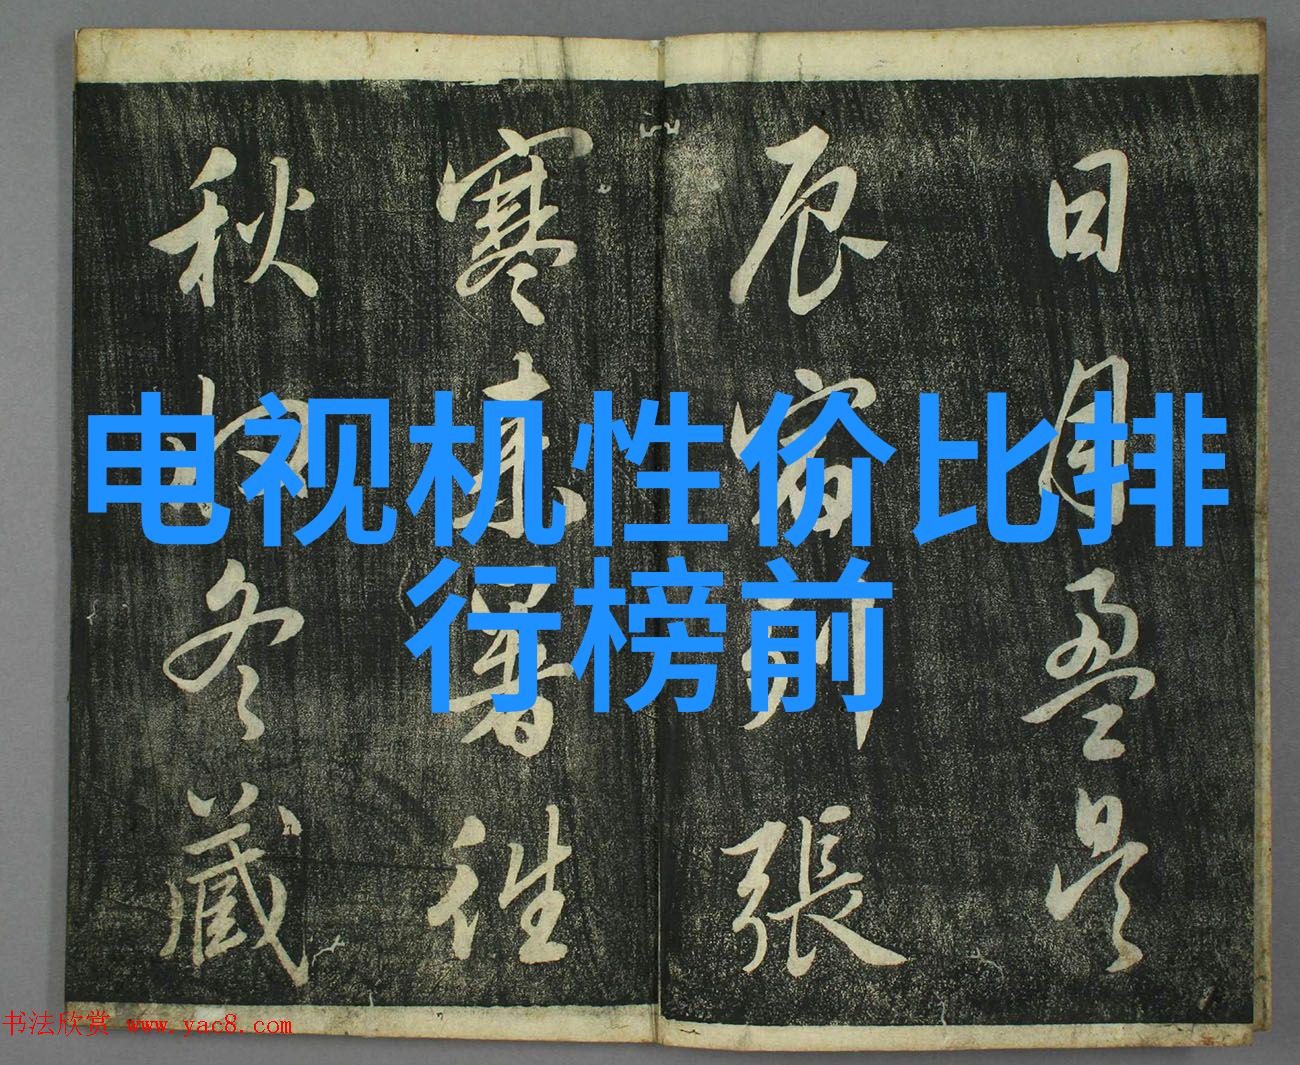 日月盈昃
辰宿列張
寒来暑往
秋收冬藏
电视机性价比排
行榜前
书法欣赏 www.yac8.com